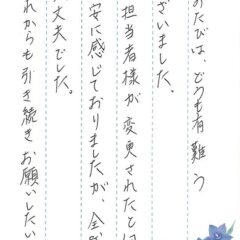 のたびは、どうも有難う
ざいました。
担当者様が変更されたと
安に感じておりましたが、全
丈夫でした。
れからも引き続きお願いしたい